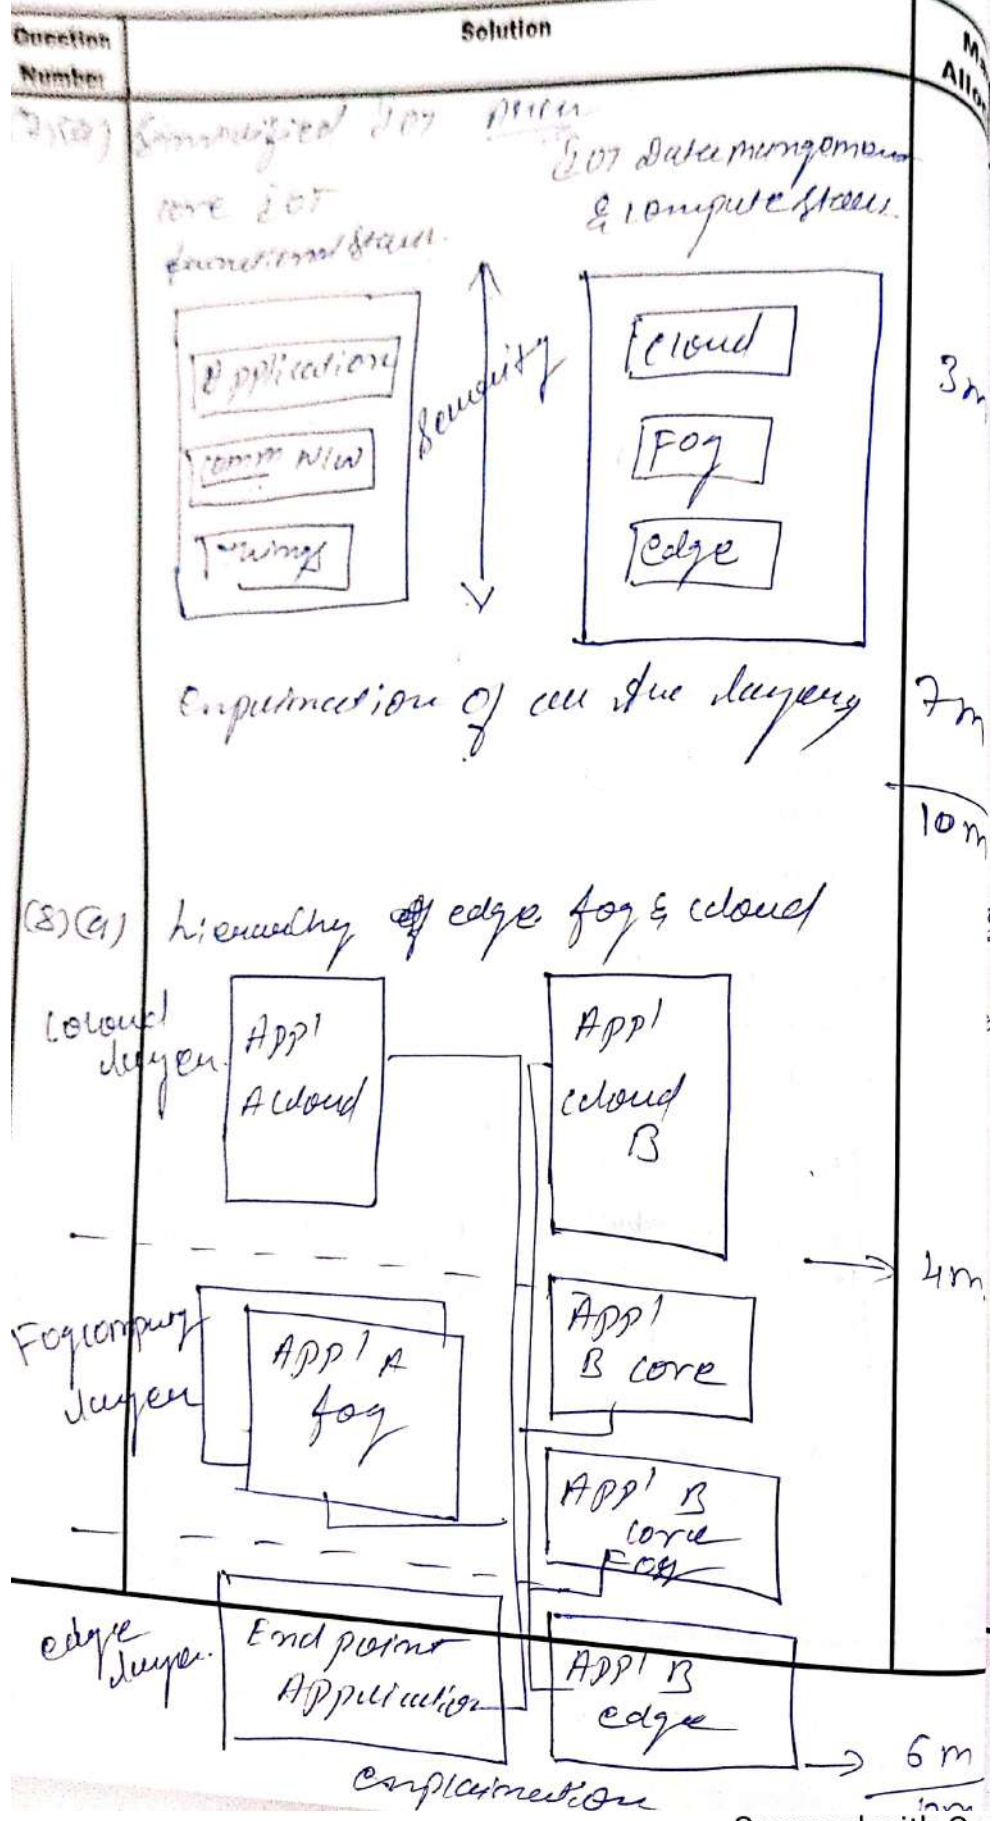 Question
Number
Solution
Ma
Alloc
7)(a) Simplified IOT Archi
core IOT
functional Stack.
IOT Data mangemen
& compute Stack.
Application
Comm N/W
Things
Security
Cloud
Fog
edge
3m
Explination of all the layers
7m
10m
(8)(a) hierarchy of edge fog & cloud
Cloud
layer.
App'
A Cloud
App'
cloud
B
4m
Fog
layer
App' A
fog
App'
B core
App' B
core
Fog
edge
layer.
End point
Application
App' B
edge
6m
10m
explaination